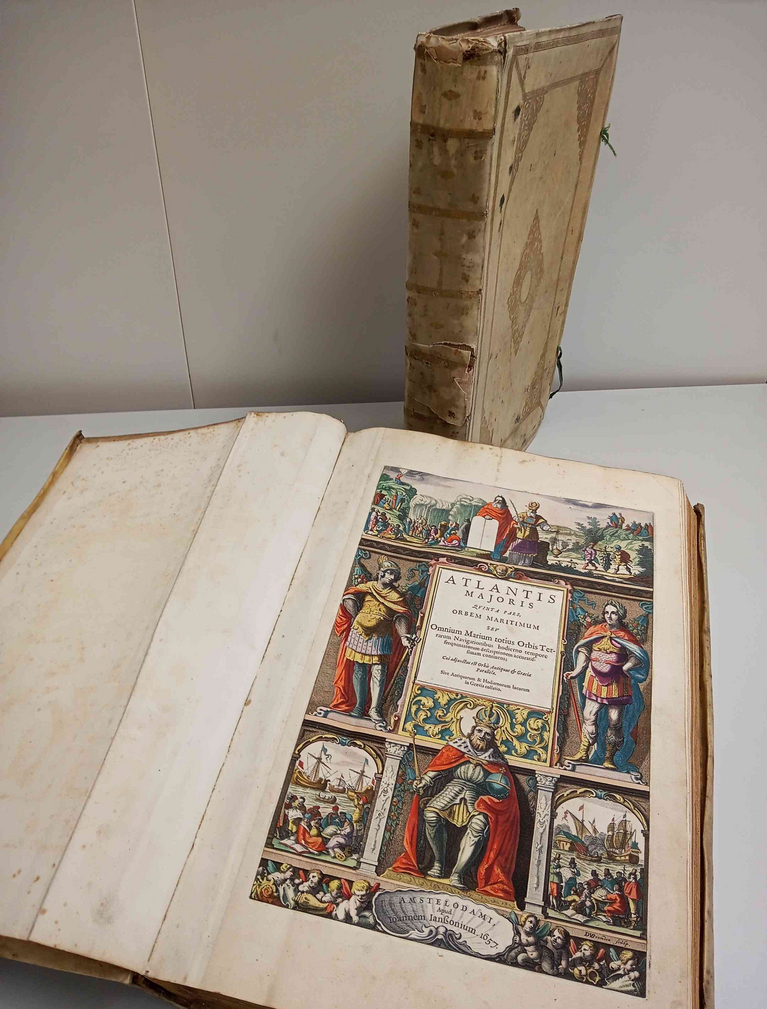 ATLANTIS
MAJORIS
QVINTA PARS,
ORBEM MARITIMUM
SEU
Omnium Marium totius Orbis Ter-
rarum Navigationibus Hodierno tempore
frequentatorum descriptionem accuratis-
simam continens;
Cui adjunctus est Orbis Antiquus & Graecia
Parallela.
Sive Antiquorum & Hodiernorum locorum
in Graecia collatio.
AMSTELODAMI,
Apud
Ioannem Ianßonium. 1657.
sculp.